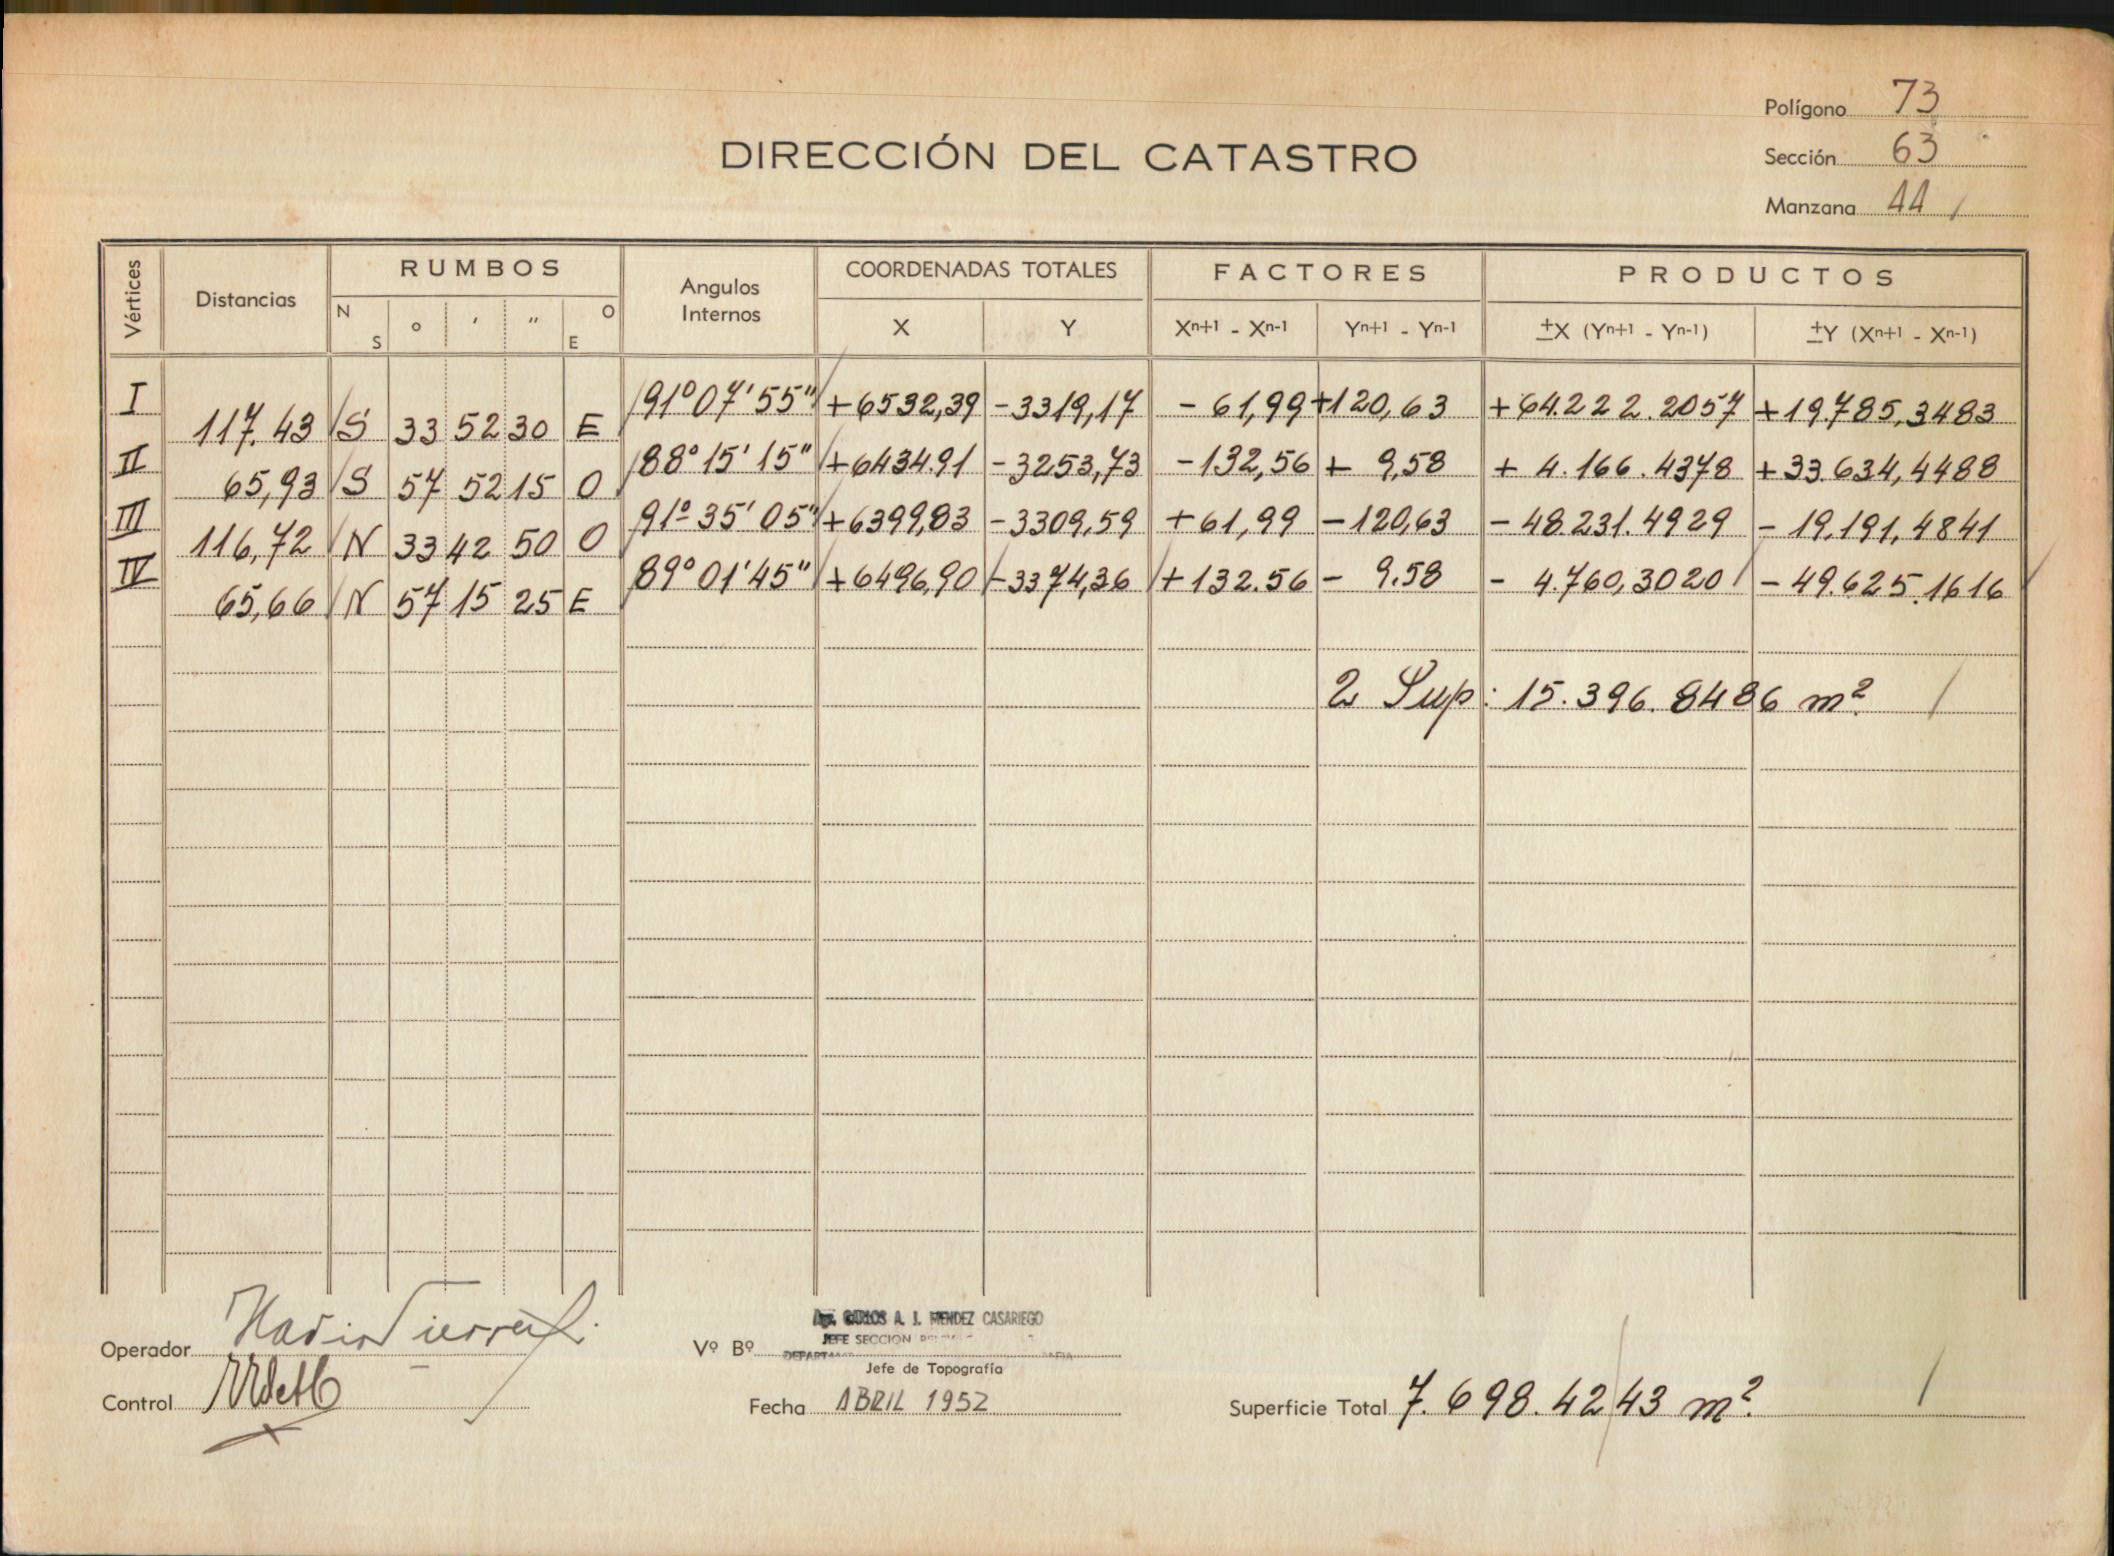 Polígono 73
DIRECCIÓN DEL CATASTRO
Sección 63
Manzana 44
Vértices Distancias RUMBOS Angulos Internos COORDENADAS TOTALES FACTORES PRODUCTOS
N S ° ' " O E X Y Xn+1 - Xn-1 Yn+1 - Yn-1 ±X (Yn+1 - Yn-1) ±Y (Xn+1 - Xn-1)
I 91°07'55" +6532,39 -3319,17 -61,99 +120,63 +64.222.2057 +19.785,3483
117.43 S 33 52 30 E
II 88°15'15" +6434.91 -3253,73 -132,56 + 9,58 + 4.166.4378 +33.634,4488
65,93 S 57 52 15 O
III 91°35'05" +6399,83 -3309,59 +61,99 -120,63 -48.231.4929 -19.191,4841
116,72 N 33 42 50 O
IV 89°01'45" +6496,90 -3374,36 +132.56 - 9.58 - 4.760,3020 -49.625.1616
65,66 N 57 15 25 E
2 Sup: 15.396.8486 m2.
Operador
Vº Bº Ing. CARLOS A. J. MENDEZ CASARIEGO
JEFE SECCION
Jefe de Topografía
Control
Fecha ABRIL 1952
Superficie Total 7.698.4243 m2.